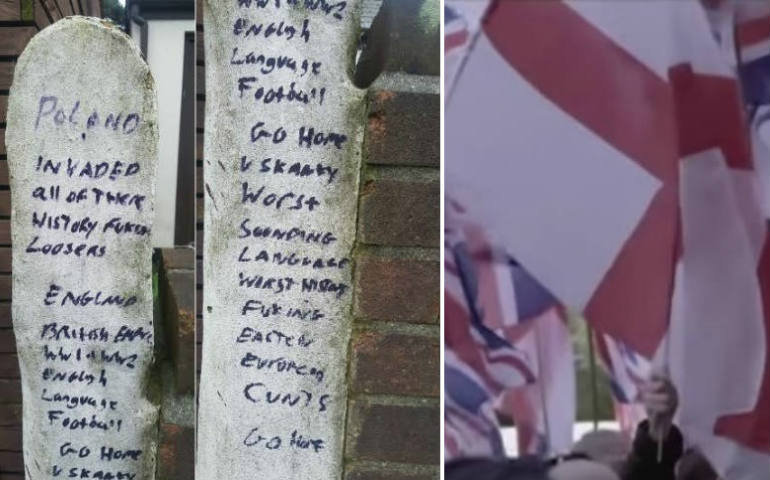 POLAND
INVADED
all OF THERE
HISTORY FUKIN
LOOSERS
ENGLAND
BRITISH
WW1 + WW2
English
Language
Football
GO HOME
U SKANKY
WW1 + WW2
English
Language
Football
GO HOME
U SKANKY
WORST
SOUNDING
LANGUAGE
WORST HISTORY
FUKING
EASTERN
EUROPEAN
CUNTS
GO HOME